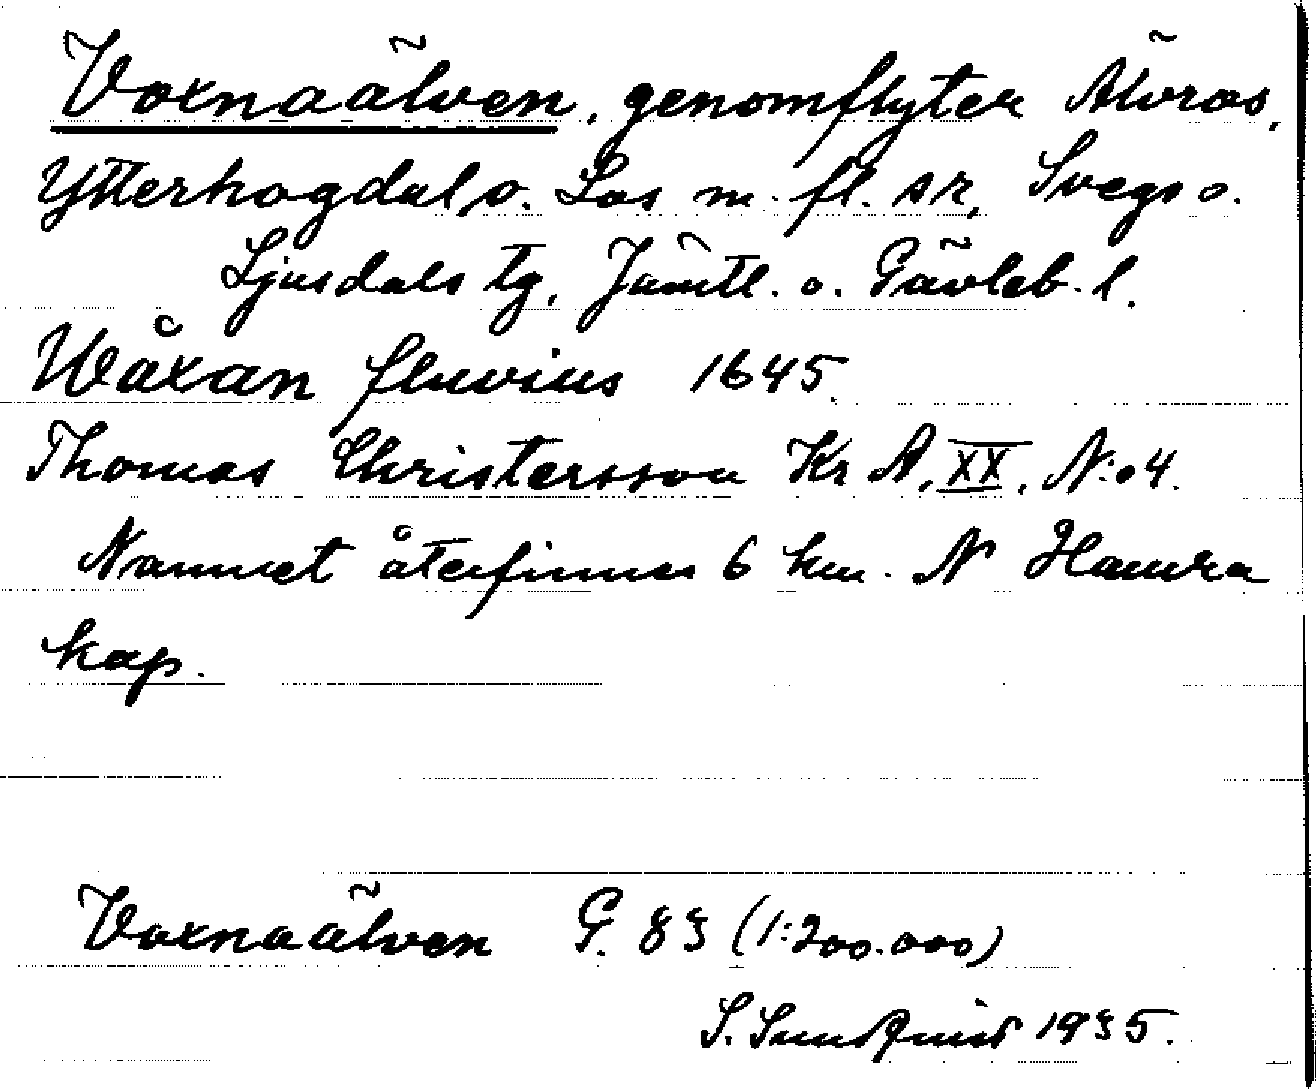 Voxnaälven, genomflyter Älvros,
Ytterhogdal, o. Los m. fl. sr, Svegs o.
Ljusdals tg, Jämtl. o. Gävleb. l.
Wåxan fluvius 1645.
Thomas Christersson Kr A, XX, N:o 4.
Namnet återfinnes 6 km. N Hamra
kap.
Voxnaälven G. 83 (1:200.000)
S. Sundquist 1935.